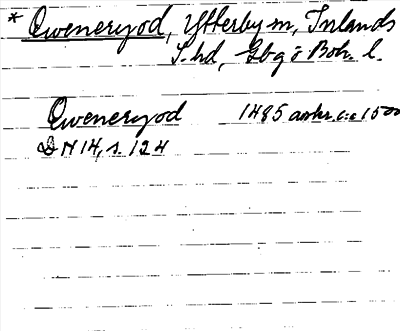 * Qweneryod, Ytterby sn, Inlands
S. hd, Gbg o Boh. l.
Qweneryod 1485 avskr. c:a 1500
DN 14, s. 124